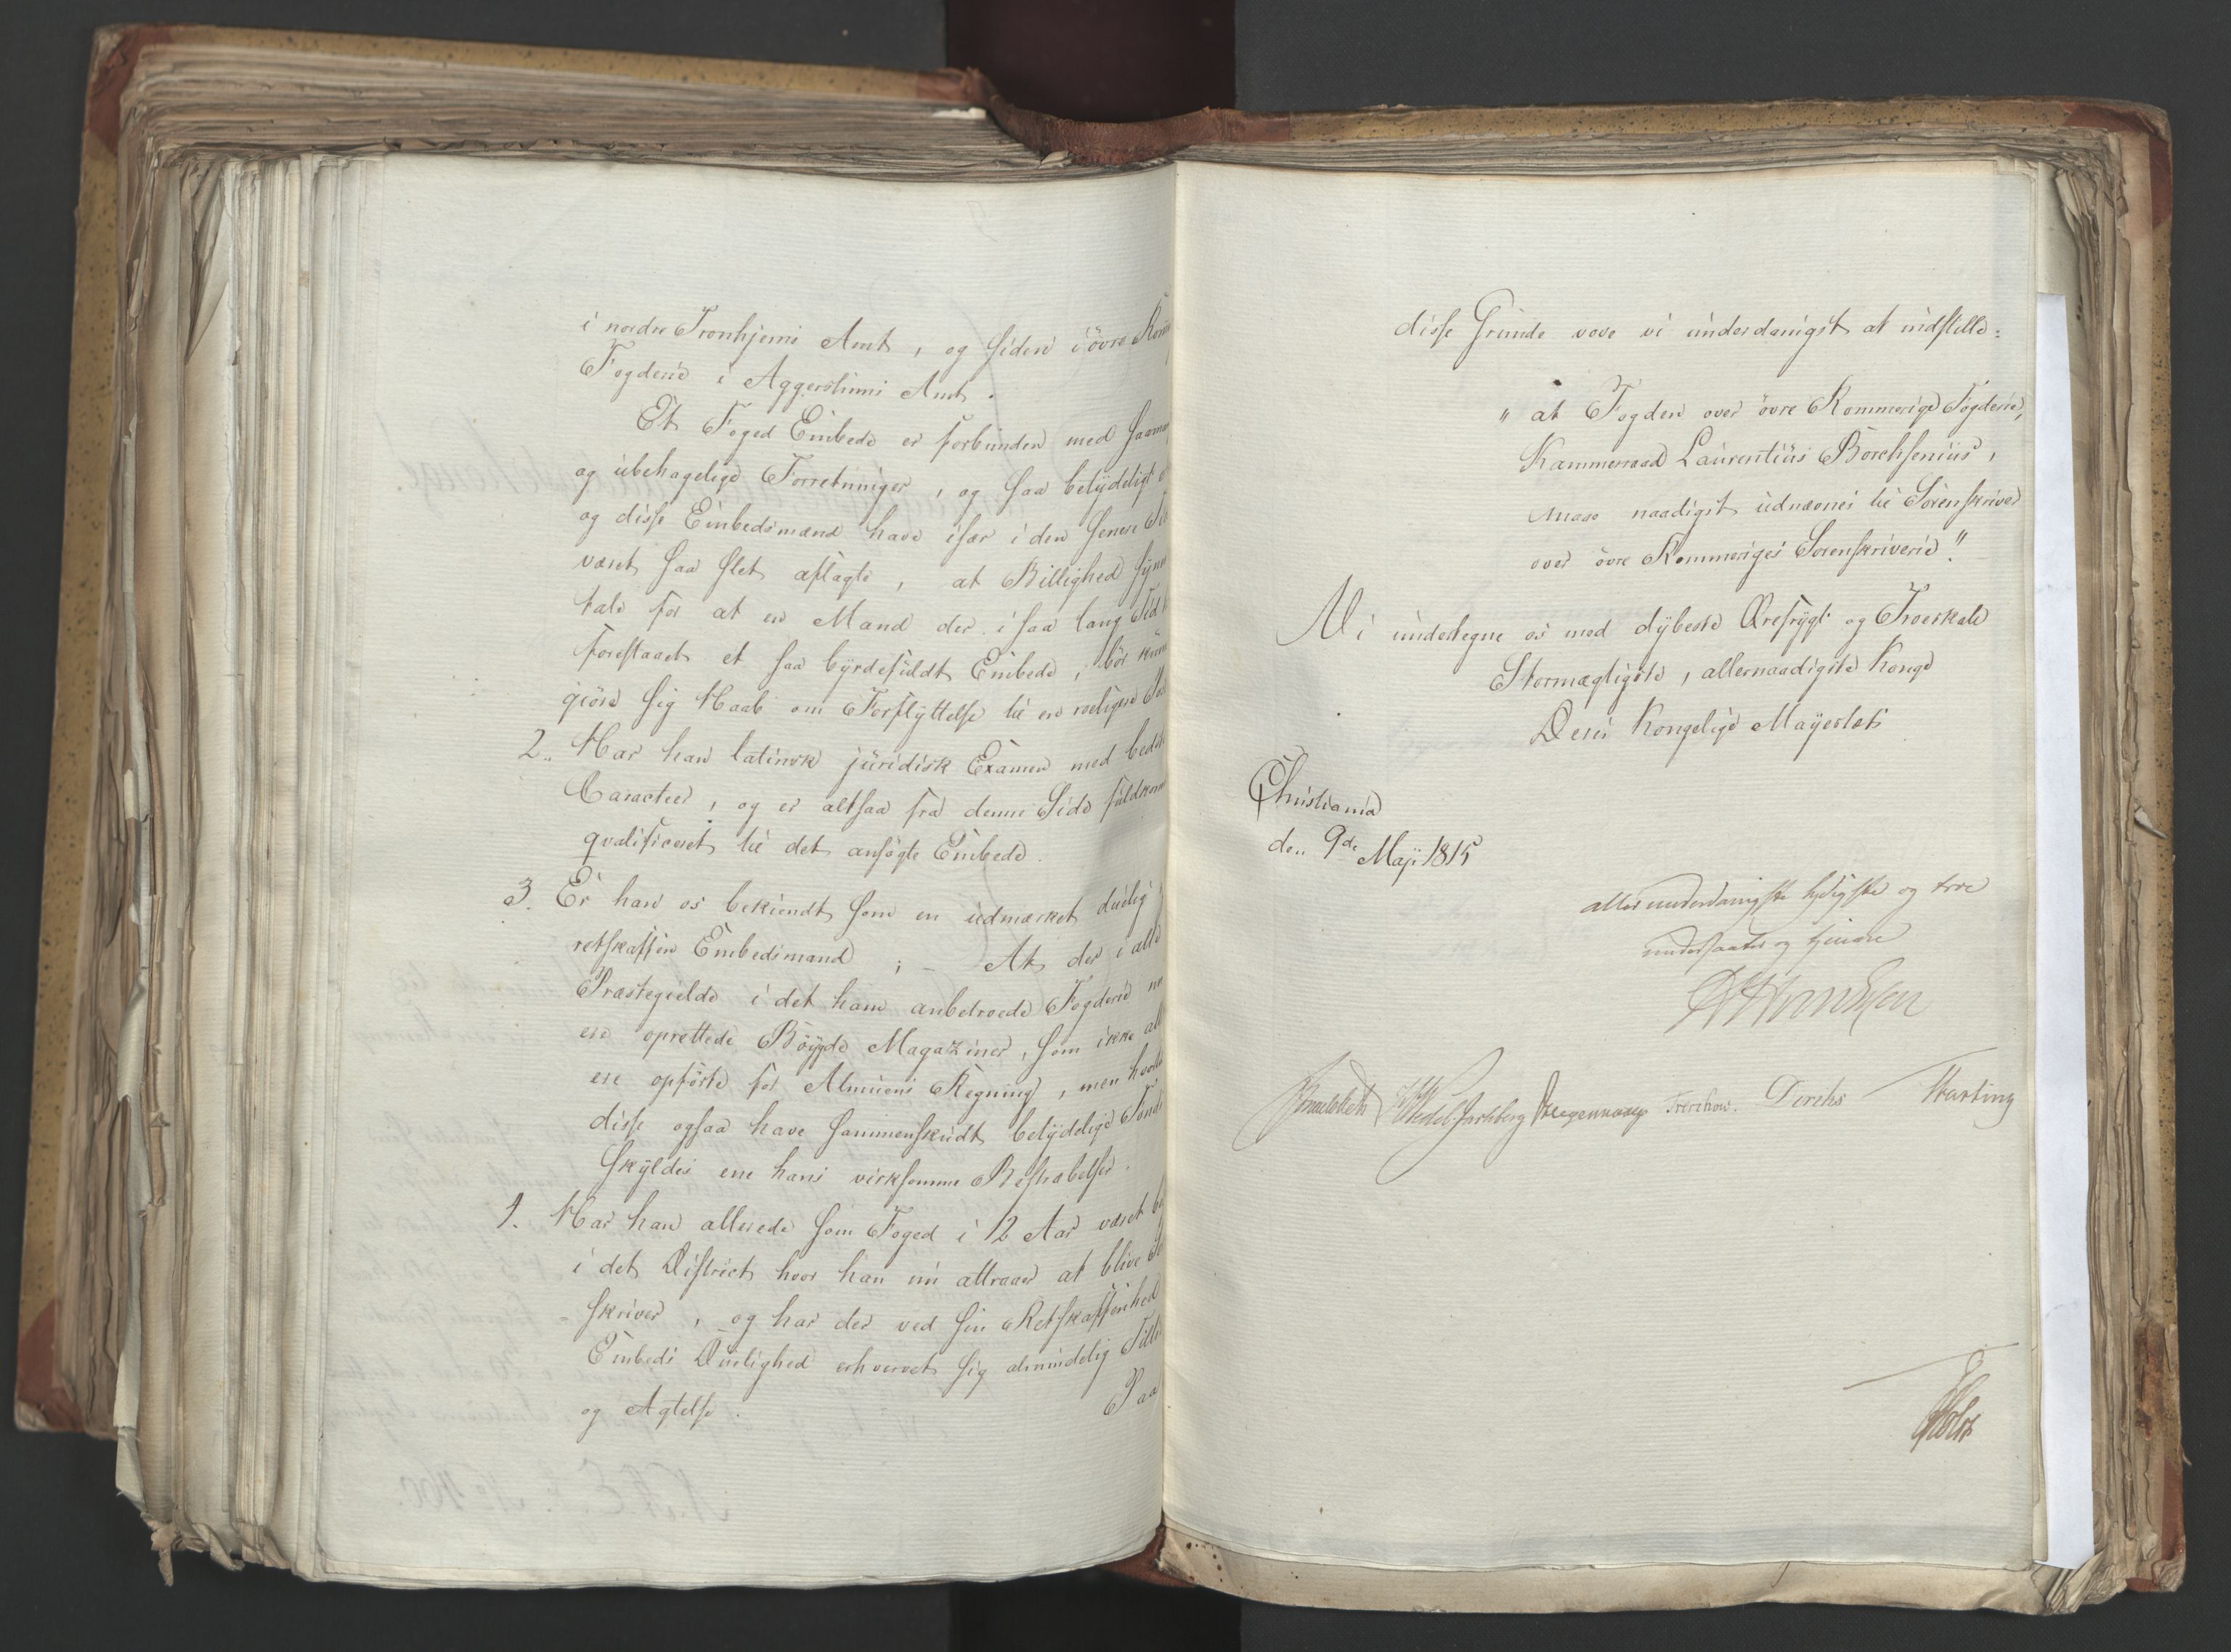 i nordre Tronhjems Amt, og siden i övre
Fogderie i Aggershuus Amt.
Et Foged Embede er forbunden med
og ubehagelige Forretninger, og saa betydeligt
og disse Embedsmænd have især i den senere
været saa slet aflagte, at Billighed
tale for at en Mand der i saa lang Tid
forestaaet et saa byrdefuldt Embede, bör
giöre sig Haab om Forflyttelse til en roeligere
2. Har han latinsk juridisk Examen med
Caracteer, og er altsaa fra denne Side
qvalificeret til det ansögte Embede.
3. Er han os bekiendt som en udmærket duelig
retskaffen Embedsmand; - At der i alle
Præstegielde i det ham anbetroede Fogderie
ere oprettede Böygde Magaziner, som ikke
ere opförte for Almuens Regning, men
disse ogsaa have sammenskudt betydelige
skyldes ene hans virksomme Bestræbelser.
4. Har han allerede som Foged i 12 Aar været
i det District hvor han nu attraaer at blive
skriver, og har der ved sin Retskaffenhed
Embeds Duelighed erhvervet sig almindelig
og Agtelse.
Paa
disse Grunde vove vi underdanigst at indstille:
"at Fogden over övre Rommerige Fogderie,
Kammerraad Laurentius Borchsenius,
maae naadigst udnævnes til Sorenskriver
over övre Rommeriges Sorenskriverie."
Vi undertegne os med dybeste Ærefrygt og Troeskab
Stormægtigste, allernaadigste Konge
Deres Kongelige Mayestæts
Christiania
den 9de Maji 1815
allerunderdanigste lydigste og troe
undersaatter og tjenere
Sommerhielm Wedel Jarlsberg Treschow. Diriks Hasting
Holst